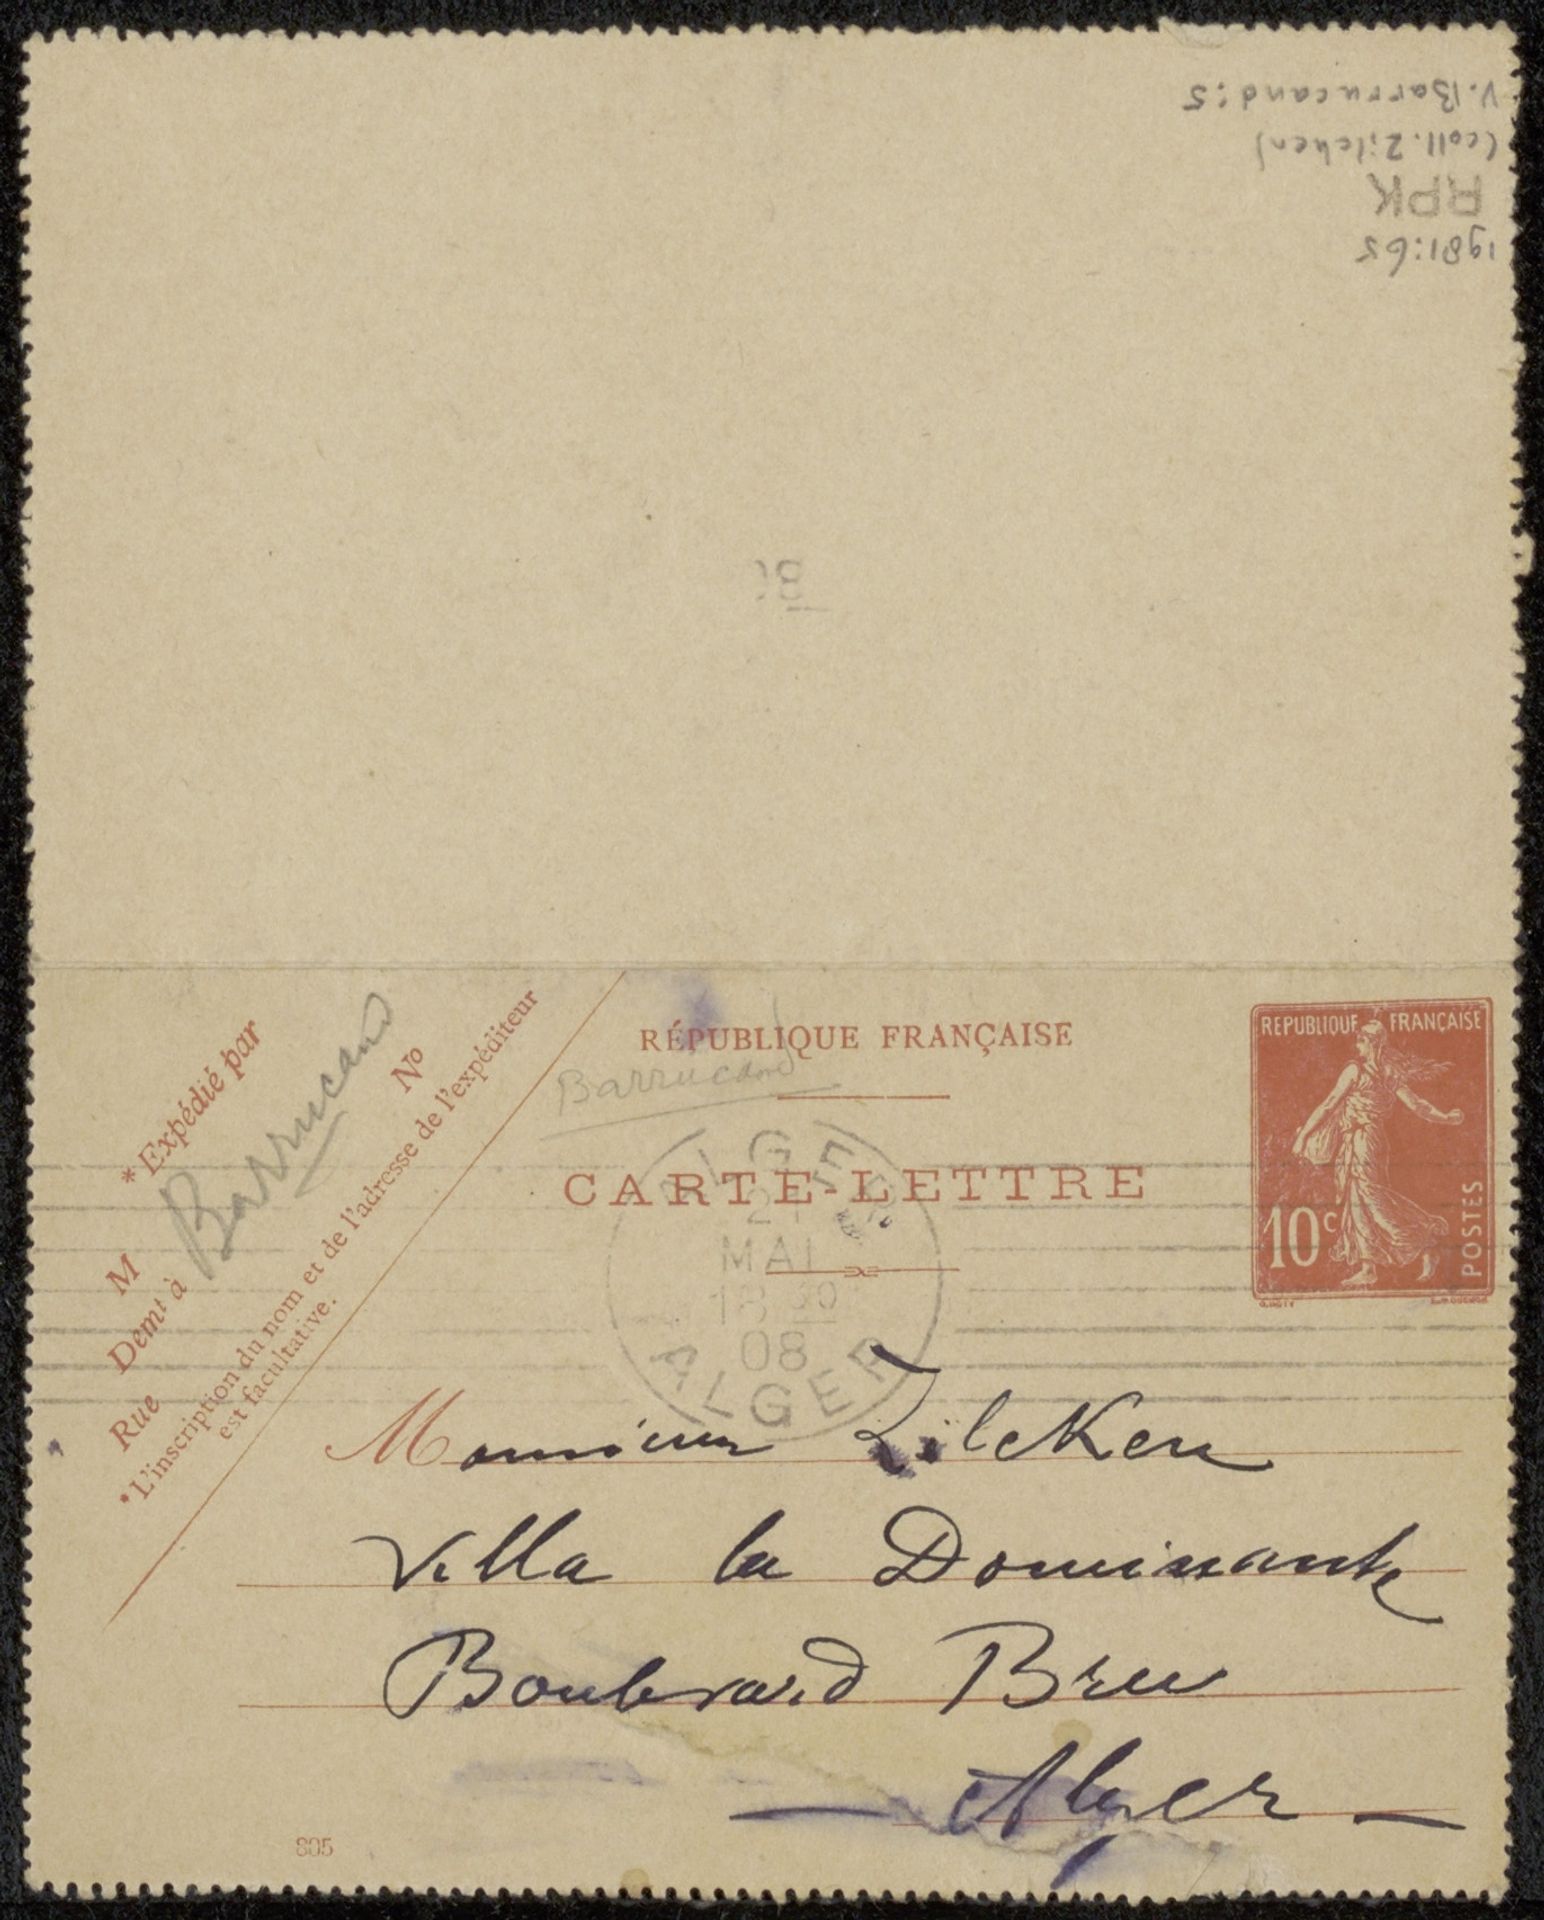 V. Barrucand: 5
(coll. Zilcken)
RPK
1981:65
RÉPUBLIQUE FRANÇAISE
Barrucand
CARTE-LETTRE
REPUBLIQUE FRANÇAISE
10c
POSTES
ALGER
21
MAI
18 30
08
ALGER
* Expédié par
M Barrucand
Demt à
Rue No
*L'inscription du nom et de l'adresse de l'expéditeur
est facultative.
Monsieur Zilcken
Villa la Dominante
Boulevard Bru
— Alger —
805